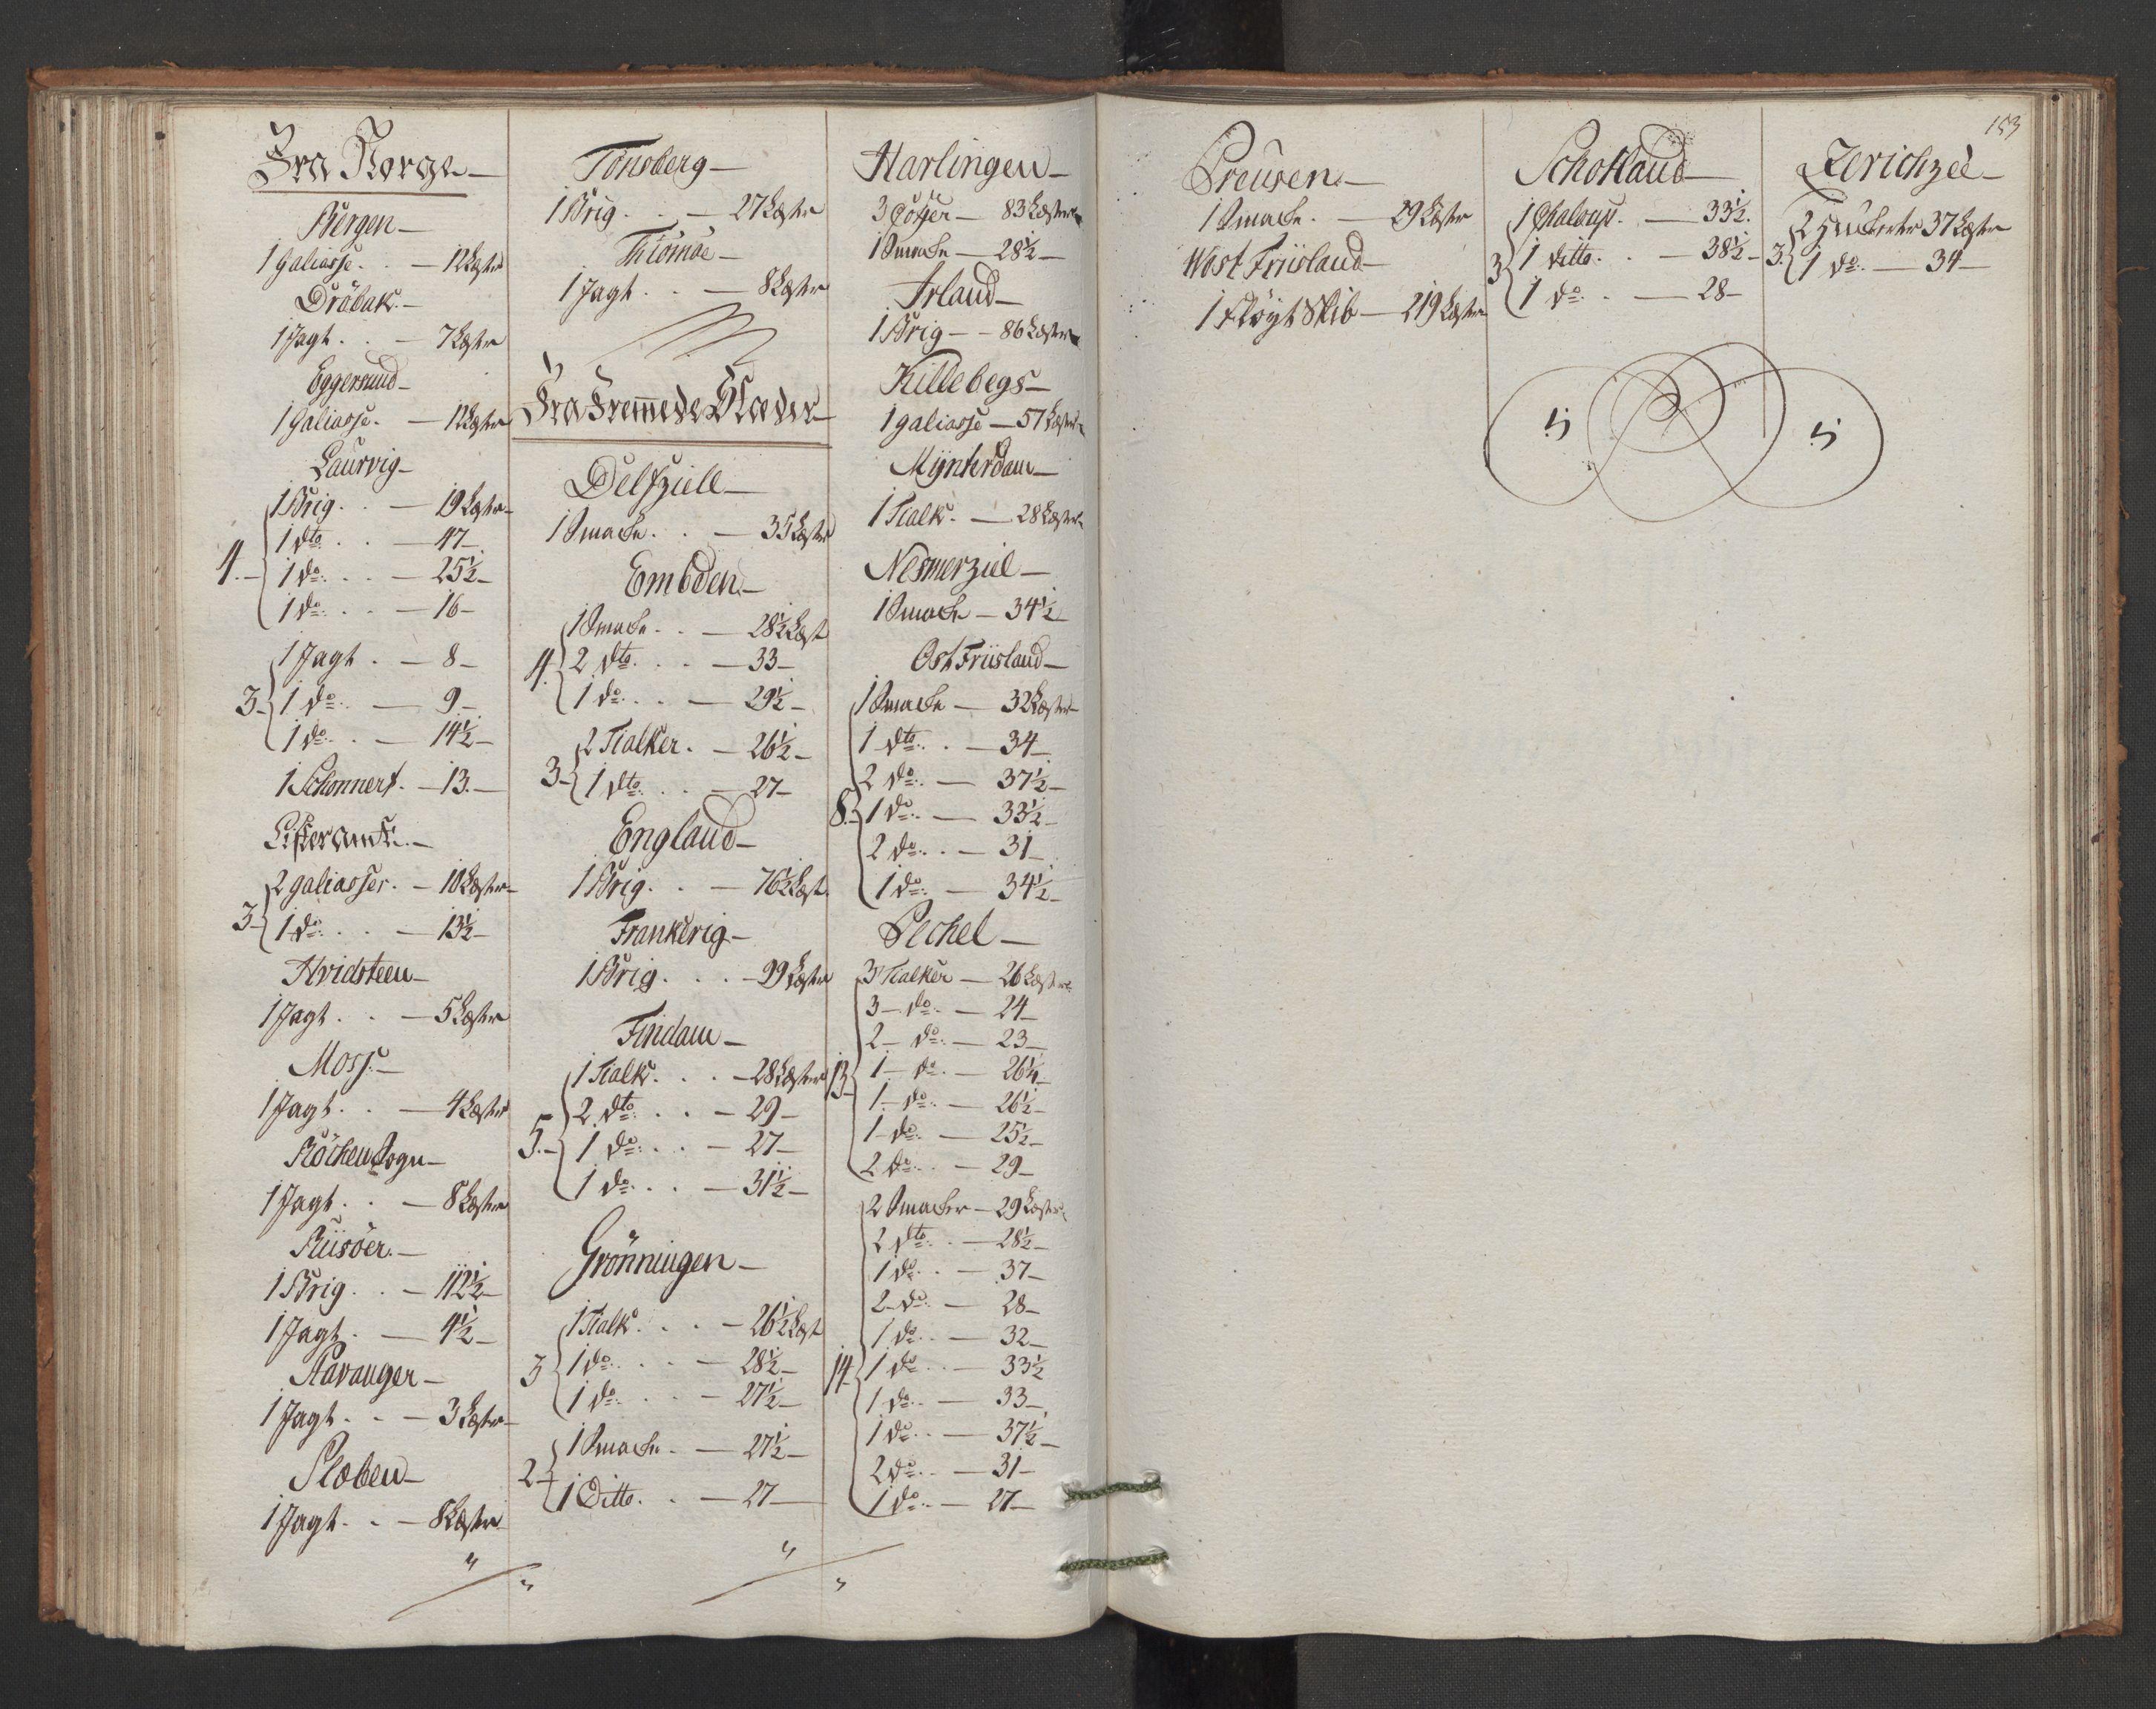 Fra Norge
Bergen
1 Galiasse. . — 12 Læster
Dröbak.
1 Jagt. . — 7 Læster
Eggersund
1 Galiasse. — 12 Læster
Laurvig
1 Brig. . — 19 Læster
1 dto. . — 47
4. 1 do. . — 25½
1 do. . — 16
1 Jagt. — 8
3 1 do. — 9
1 do. . — 14½
1 Schonnert. — 13.
Listeramt.
2 Galiasser. — 10 Læster
3 1 do. . — 13½
Hvidsteen
1 Jagt. . — 5 Læster
Moss.
1 Jagt. . — 4 Læster
Röcken Sogn
1 Jagt. . — 8 Læster
Riisöer.
1 Brig. . — 112½
1 Jagt. — 4½
Stavanger
1 Jagt. . — 3 Læster
Slæben
1 Jagt. . — 8 Læster
Tönsberg
1 Brig. . — 27 Læster
Thiömöe
1 Jagt. . — 8 Læster
Fra Fremmede Stæder
Delfziell
1 Smacke. . — 35 Læster
Embden
1 Smacke. . — 28½ Læst
4. 2 dto. . — 33
1 do. . — 29½
2 Tialker. — 26½
3 1 dto. . — 27
England
1 Brig. . — 76½ Læst.
Frankerig
1 Brig. . . — 99 Læster
Findam
1 Tialk. . . — 28 Læster
2 dto. . . — 29
5. 1 do. . . — 27
1 do. . . — 31½
Grönningen
1 Tialk. . . — 26½ Læst
3 1 do. . . — 28½
1 do. . . — 27½
1 Smacke. — 27½
2 1 Ditto. . — 27
Harlingen
3 Coffer — 83 Læster
1 Smacke — 28½
Irland
1 Brig — 86 Læster
Killebegs
1 Galiasse — 57 Læster
Mÿnterdam
1 Tialk. — 28 Læster
Nesmerziel
1 Smacke — 34½
Ost Friisland
1 Smacke — 32 Læster
1 dto. . — 34
2 do. — 37½
8. 1 do. — 33½
2 do. . — 31
1 do. — 34½
Pechel
3 Tialker — 26 Læster
3 do. — 24
2 do. — 23
13 1 do. — 26¼
1 do. — 26½
1 do. — 25½
2 do. . — 29
2 Smacker — 29 Læster
2 dto. . — 28½
1 do. . — 37
2 do. — 28
1 do. . — 32
14 1 do. . — 33½
1 do. . — 33
1 do. . — 37½
2 do. . — 31
1 do. . — 27
153
Preusen.
1 Smacke. — 29 Læster
West Friisland
1 Fløyt Skib — 219 Læster
Schotland
1 Chaloup. — 33½.
3 1 ditto. . — 38½
1 do. . — 28
Zerichzee
2 Huckerter 37 Læster
3. 1 do. — 34